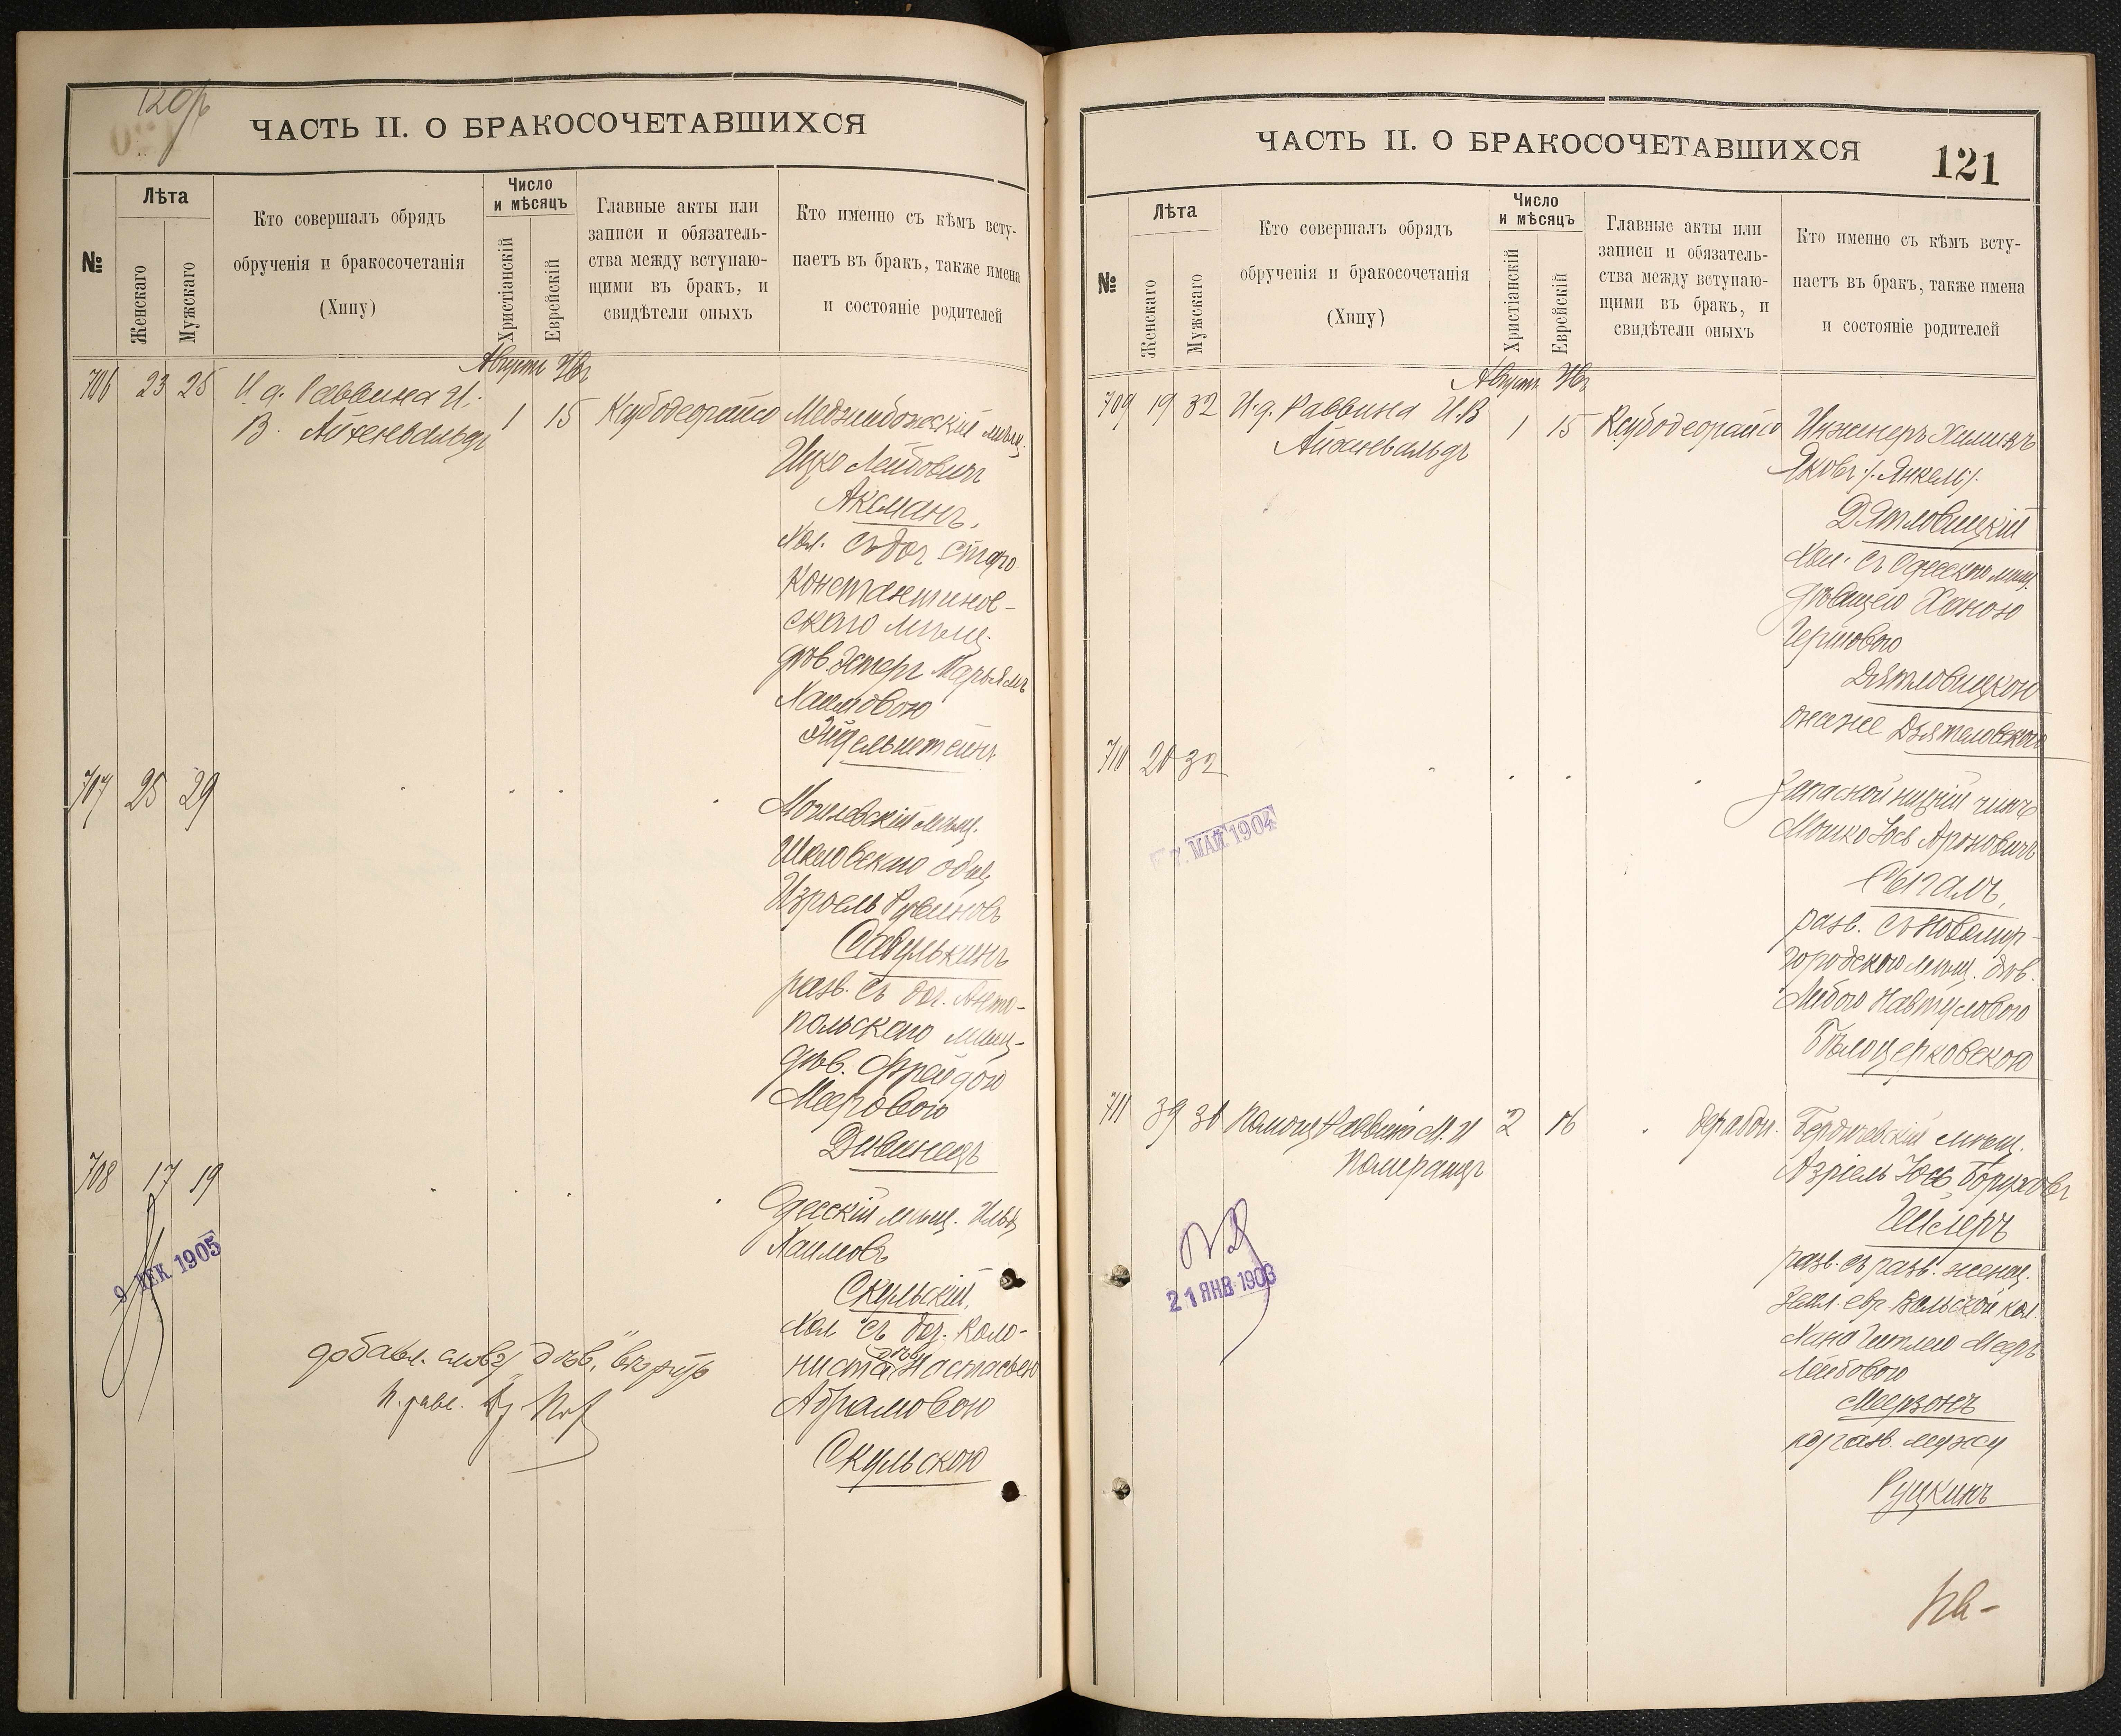 ЧАСТЬ II. О БРАКОСОЧЕТАВШИХСЯ
№
Лѣта
Женскаго
Мужскаго
Кто совершалъ обрядъ
обрученія и бракосочетанія
(Хипу)
Число
и мѣсяцъ
Христіанскій
Еврейскій
Главные акты или
записи и обязатель-
ства между вступаю-
щими въ бракъ, и
свидѣтели оныхъ
Кто именно съ кѣмъ всту-
паетъ въ бракъ, также имена
и состояніе родителей
Августъ
706 23 25 И. д. Раввина И.
В. Айхенвальдъ
1 15
Меджибожскій мѣщ.
Ицко Лейбовичъ
Аксманъ,
хол. съ доч. Старо
Константинов-
скаго мѣщ.
дѣв. Эстеръ Марьямъ
Хаимовою
707 25 29
Могилевскій мѣщ.
Шкловскаго общ.
Изроель Рувиновъ
Савулькинъ
разв. съ доч. Анто-
польскаго мѣщ-
дѣв. Фрейдою
Мееровою
Дивинецъ
708 17 19
9 ДЕК 1905
Одесскій мѣщ.
Хаимовъ
Скульскій,
хол съ доч. коло-
ниста дѣв. Настасьею
Абрамовою
Скульскою
добавл. слово „дѣв."
ЧАСТЬ II. О БРАКОСОЧЕТАВШИХСЯ
121
№
Лѣта
Женскаго
Мужскаго
Кто совершалъ обрядъ
обрученія и бракосочетанія
(Хипу)
Число
и мѣсяцъ
Христіанскій
Еврейскій
Главные акты или
записи и обязатель-
ства между вступаю-
щими въ бракъ, и
свидѣтели оныхъ
Кто именно съ кѣмъ всту-
паетъ въ бракъ, также имена
и состояніе родителей
Августъ
709 19 32 И. д. Раввина И. В
Айхенвальдъ
1 15
Инженеръ Химикъ
Яковъ /: Янкель :/
Дятловицкій
хол. съ Одесскою мѣщ.
дѣвицею Ханою
Герцовою
Дятловицкою
онаже Дзятеловскою
710 20 32
7. МАЙ 1904
Запасной нижній чинъ
Мошко Іось Ароновичъ
Сегалъ,
разв. съ Новомир-
городскою мѣщ. дѣв.
Либою Навтуловою
Бѣлоцерковскою
711 39 36 Помощ Раввина М. И
Померанцъ
2 16
Бердичевскій мѣщ.
Азріель Іось Боруховъ
разв. съ разв. женщ.
Хана Гитлею Меръ
Лейбовою
Меерзонъ
по разв. мужу
Руцкинъ
21 ЯНВ 1903